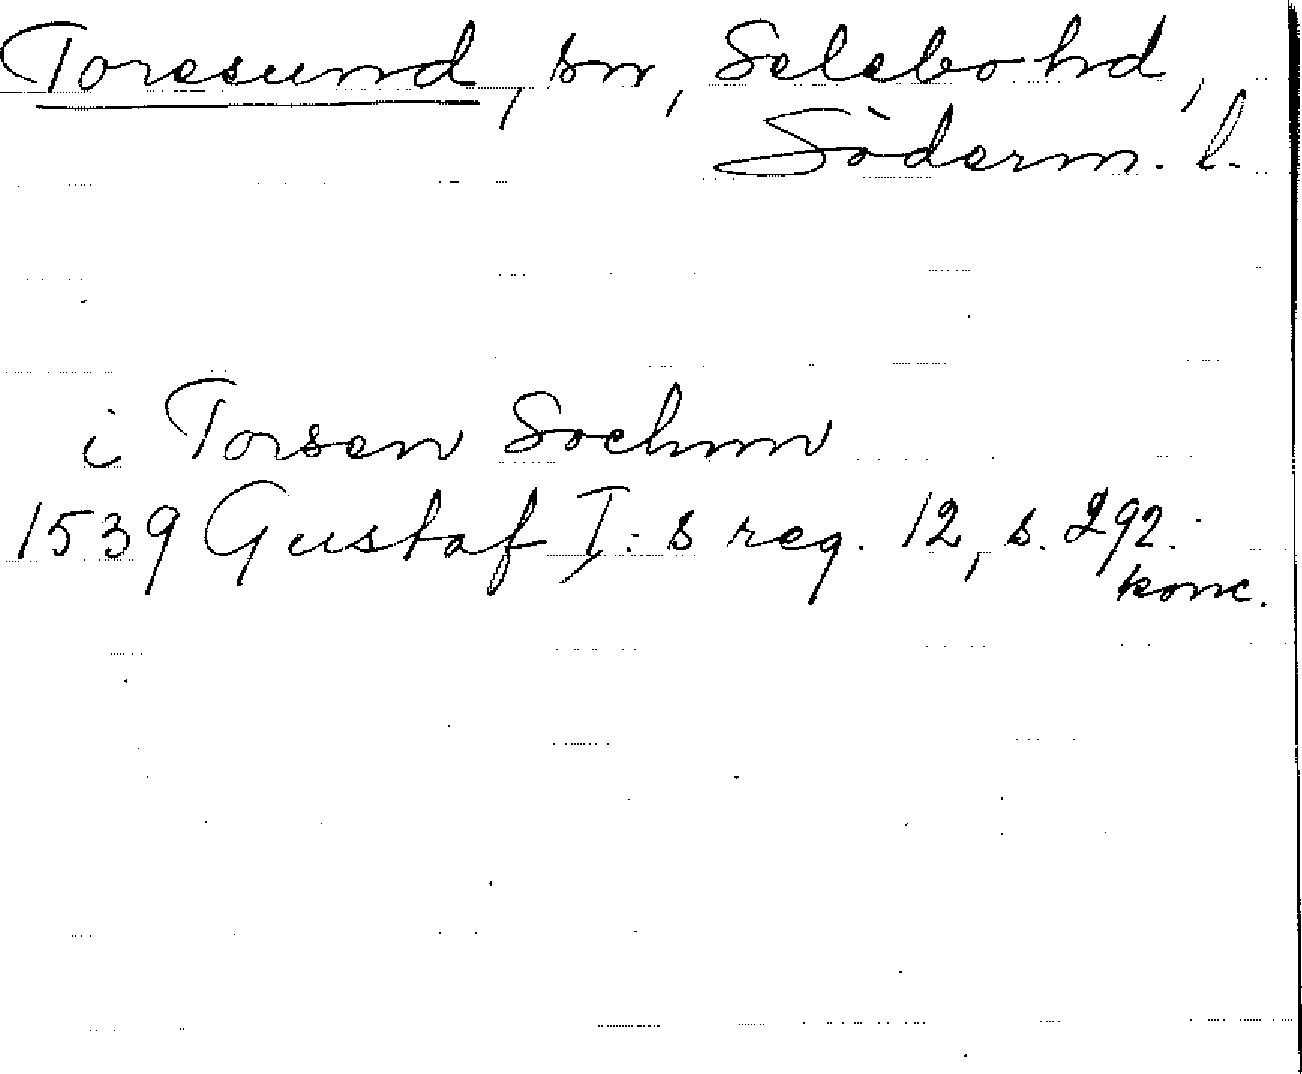 Toresund, sn, Selebo hd,
Söderm. l.
i Torsen Sochnn
1539 Gustaf I:s reg. 12, s. 292.
konc.